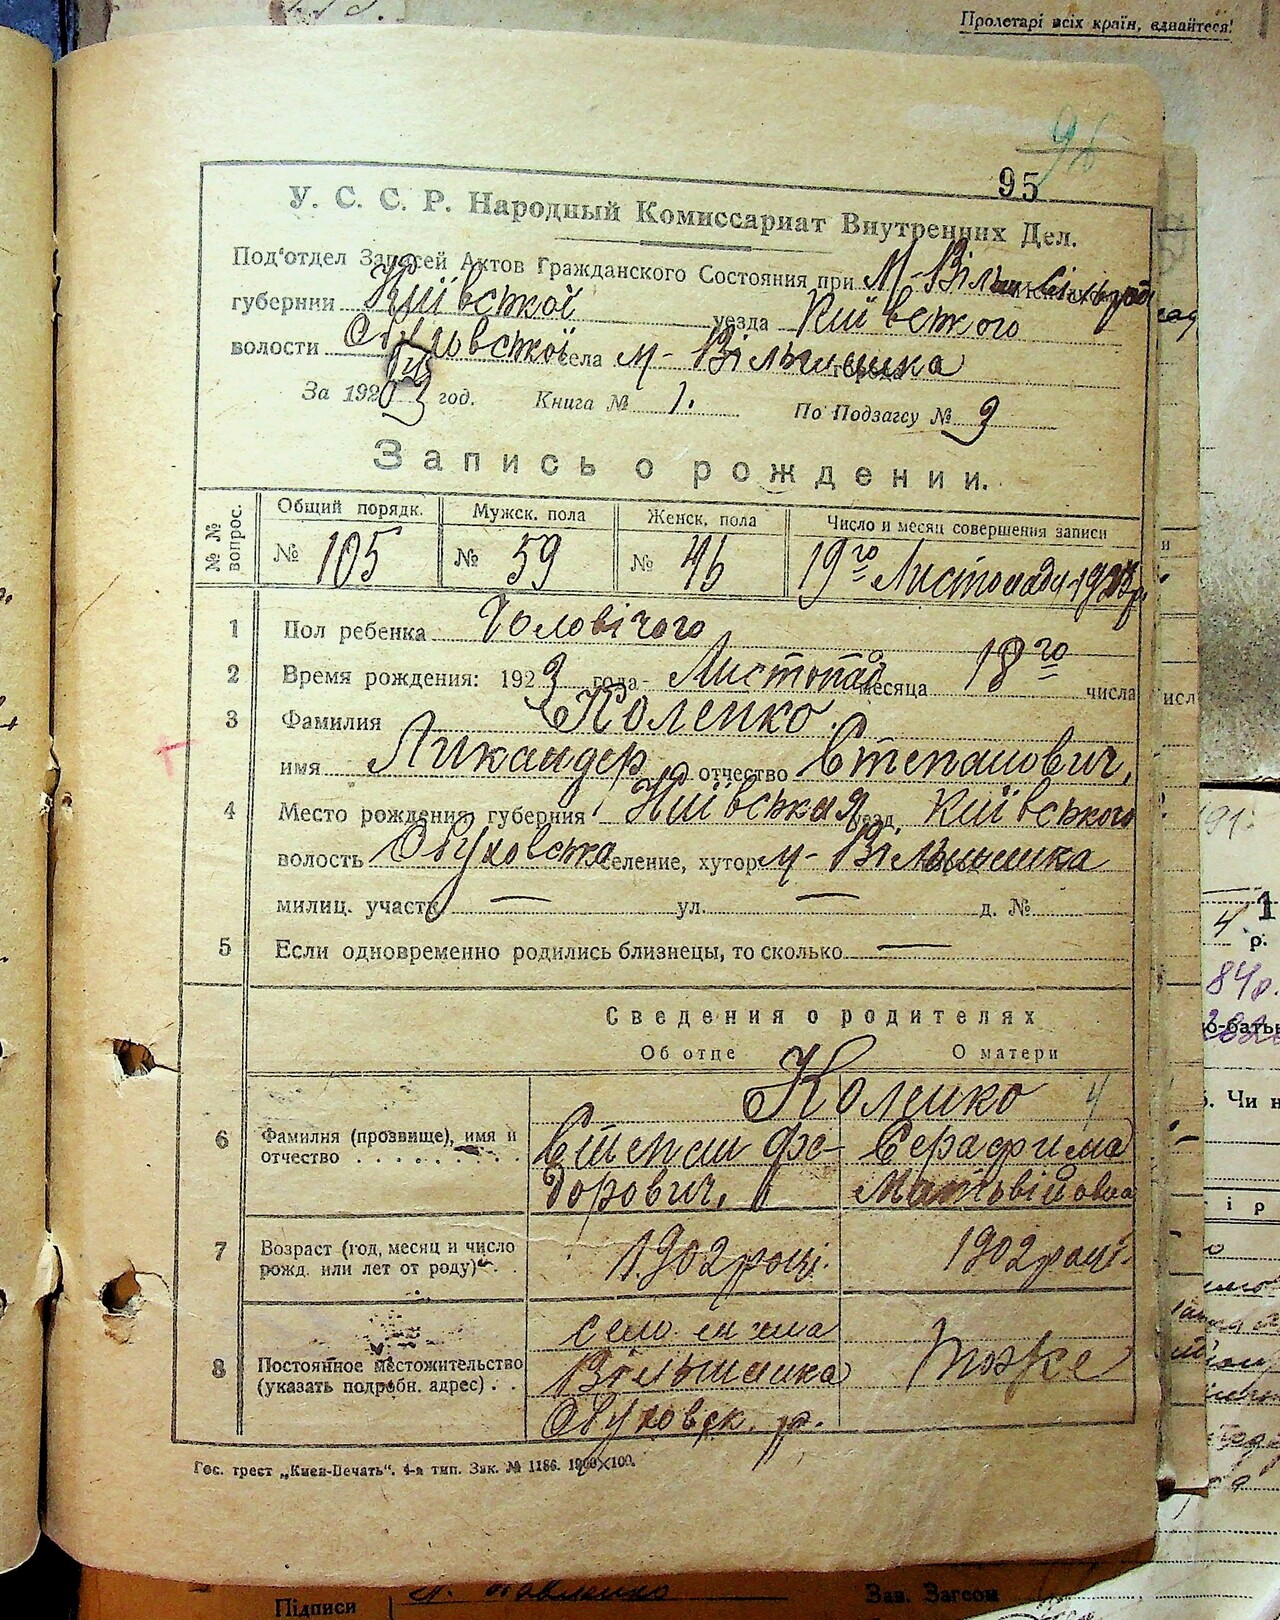 Пролетарі всіх країн, єднайтеся!
96
95
У. С. С. Р. Народный Комиссариат Внутренних Дел.
Под'отдел Записей Актов Гражданского Состояния при М-Віль
губернии Київської уезда Київського
волости Обуховської села м- Вільшанка
За 1923 год. Книга № 1. По Подзагсу № 3
Запись о рождении.
№№ вопрос. Общий порядк. Мужск. пола Женск. пола Число и месяц совершения записи
№ 105 № 59 № 46 19го Листопада 1923р.
1 Пол ребенка Чоловічого
2 Время рождения: 1923 года Листопад месяца 18го числа
3 Фамилия Коленко
имя Никандер отчество Степанович,
4 Место рождения, губерния Київська уезд Київського
волость Обуховська селение, хутор м- Вільшанка
милиц. участк. — ул. — д. №
5 Если одновременно родились близнецы, то сколько —
Сведения о родителях
Об отце О матери
Коленко
6 Фамилия (прозвище), имя и отчество Степан Фе- Серафима
дорович. Матьвійовна
7 Возраст (год, месяц и число рожд. или лет от роду) 1902 році. 1902 році.
8 Постоянное местожительство (указать подробн. адрес) село
Вільшанка тоже
Обуховск. р.
Гос. трест „Киев-Печать“. 4-я тип. Зак. № 1186. 1000×100.
Підписи
Зав. Загсом